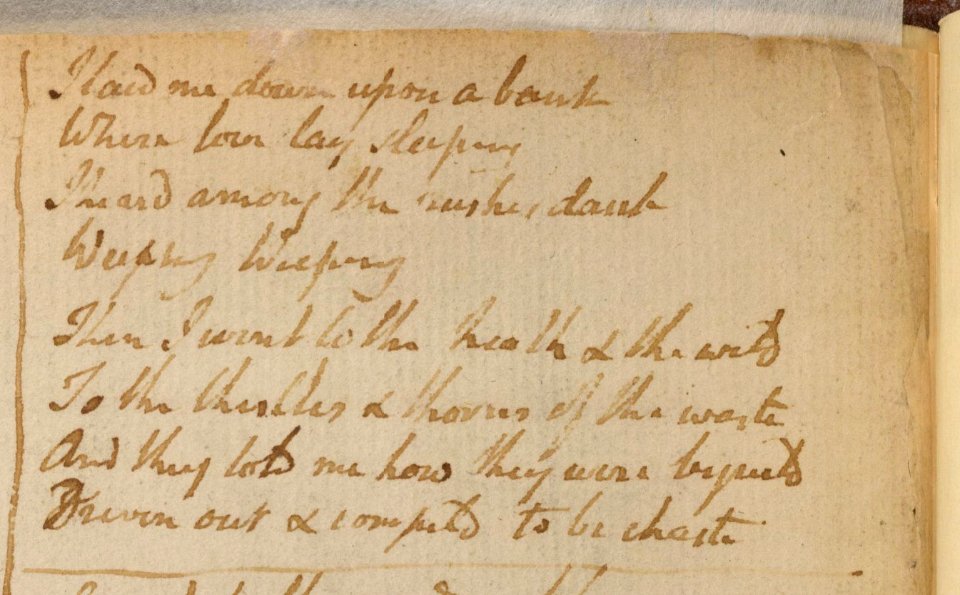 I laid me down upon a bank
Where love lay sleeping
I heard among the rushes dank
Weeping Weeping
Then I went to the heath & the wild
To the thistles & thorns of the waste
And they told me how they were beguild
Driven out & compeld to be chaste